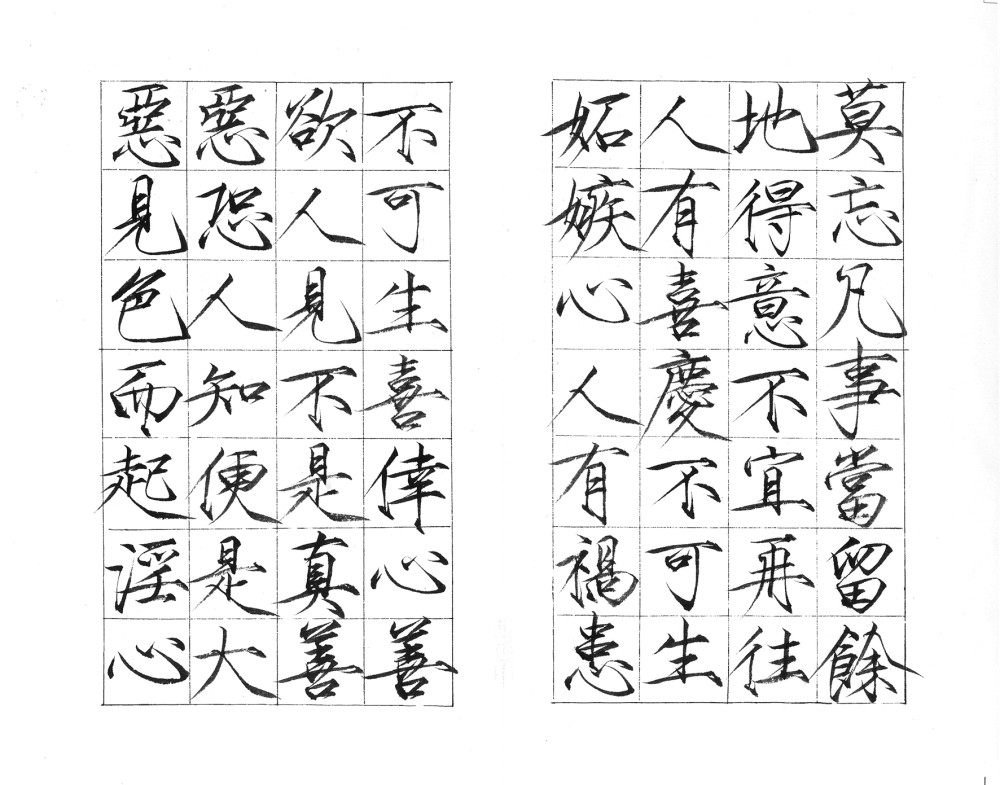 莫忘凡事當留餘
地得意不宜再往
人有喜慶不可生
妬嫉心人有禍患
不可生喜倖心善
欲人見不是真善
惡恐人知便是大
惡見色而起淫心